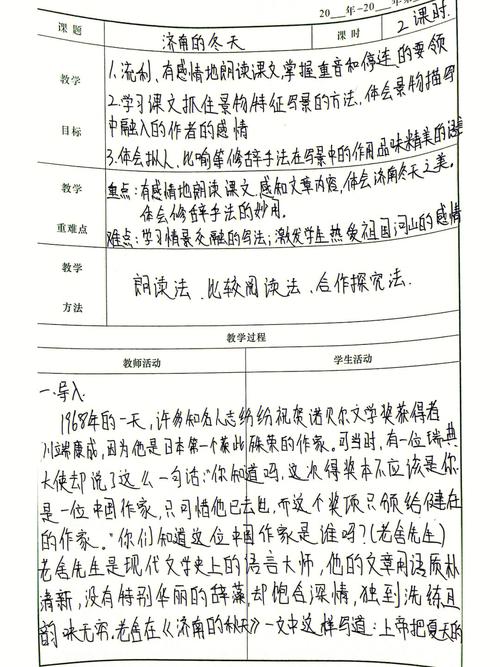 20___年-20___年第
课题
济南的冬天
课时
2课时.
教学
目标
1.流利、有感情地朗读课文,掌握重音和停连的要领
2.学习课文抓住景物特征写景的方法,体会景物描写
中融入的作者的感情
3.体会拟人、比喻等修辞手法在写景中的作用品味精美的语言
教学
重难点
重点:有感情地朗读课文,感知文章内容,体会济南冬天之美。
体会修辞手法的妙用.
难点:学习情景交融的写法;激发学生热爱祖国河山的感情
教学
方法
朗读法、比较阅读法、合作探究法.
教学过程
教师活动
学生活动
一.导入.
1968年的一天,许多知名人志纷纷祝贺诺贝尔文学奖获得者
川端康成,因为他是日本第一个获此殊荣的作家。可当时,有一位瑞典
大使却说了这么一句话:"你知道吗,这次得奖本不应该是你
是一位中国作家,只可惜他已去世,而这个奖项只颁给健在
的作家。"你们知道这位中国作家是谁吗?(老舍先生)
老舍先生是现代文学史上的语言大师,他的文章用语质朴
清新,没有特别华丽的辞藻,却饱含深情,独到洗练且
韵味无穷.老舍在《济南的秋天》一文中这样写道:上帝把夏天的